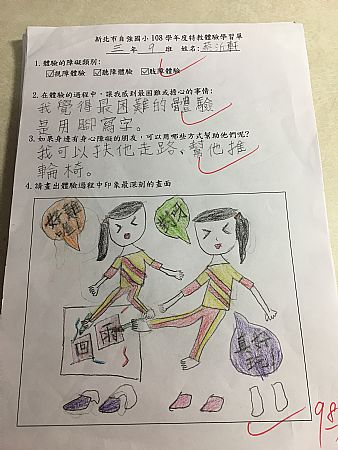 新北市自強國小 108 學年度特教體驗學習單
三 年 9 班 姓名:蔡沂軒
1. 體驗的障礙類別:
☑視障體驗 ☑聽障體驗 ☑肢障體驗
2. 在體驗的過程中，讓我感到最困難或擔心的事情:
我覺得最困難的體驗
是用腳寫字。
3. 如果身邊有身心障礙的朋友，可以用哪些方式幫助他們呢?
我可以扶他走路、幫他推
輪椅。
4. 請畫出體驗過程中印象最深刻的畫面
好難
喔
對呀
回
雨
真好
玩
98